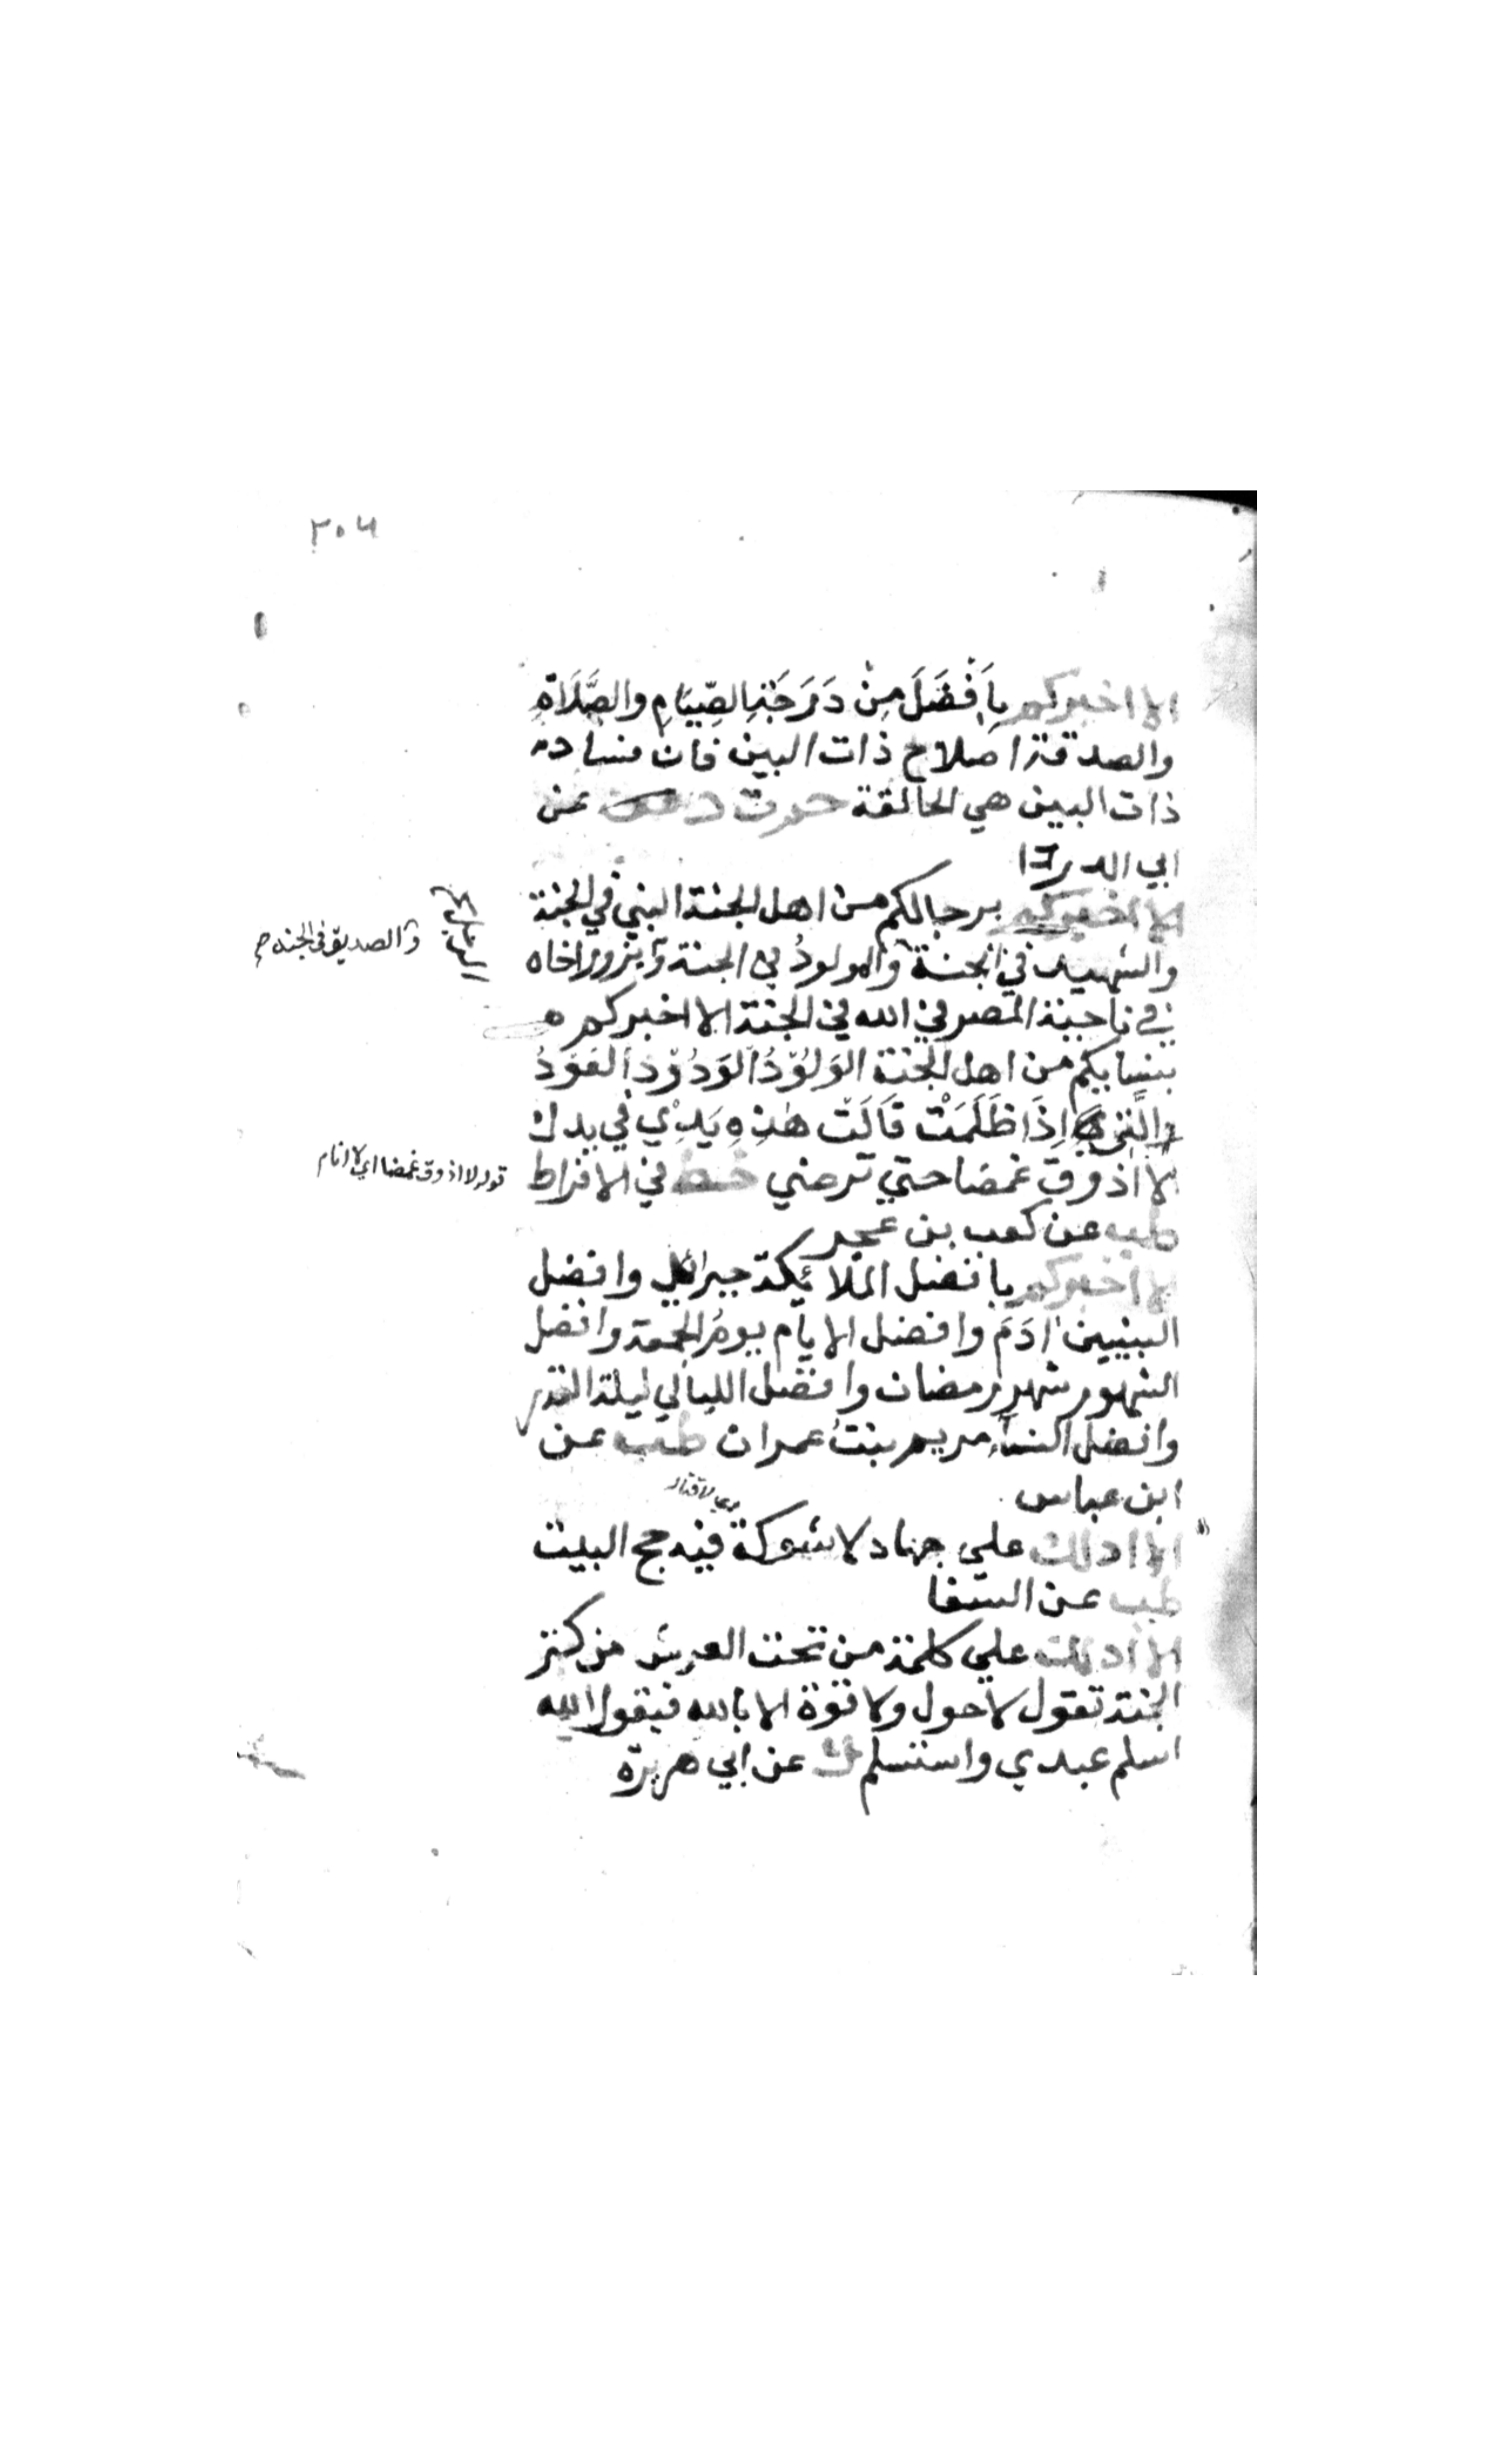 ٣٠٤
الا اخبركم بِاَفْضَلَ مِنْ دَرَجَةِ الصِّيَامِ والصَّلَاةِ
والصدقة اصلاح ذات البين فان فساد
ذات البين هي الحالقة حم د ت عن
ابي الدرداء
الا اخبركم برجالكم من اهل الجنة النبي في الجنة
والشهيد في الجنة والمولودُ في الجنة والرجل يزور اخاه
والصديق في الجنة صح
في ناحية المصر في الله في الجنة الا اخبركم
بنسايكم من اهل الجنة الوَلُوْدُ الوَدُوْدُ العَوَدُ
الَّتِي اِذَا ظَلَمَتْ قَالَتْ هٰذِهِ يَدِيْ في يدك
لا اذوق غمضا حتي ترضي قط في الافراط
قوله لا اذوق غمضا اي لا انام
طب عن كعب بن عجر
الا اخبركم بافضل الملائكة جبرائيل وافضل
النبيين اٰدَمَ وافضل الايام يومُ الجمعة وافضل
الشهور شهر رمضان وافضل الليالي ليلة القدر
وافضل النساءِ مريم بنتُ عمران طب عن
ابن عباس
الا ادلك علي جهاد لا شوكة فيه حج البيت
طب عن الشفا
الا ادلك علي كلمة من تحت العرش من كنز
الجنة تقول لا حول ولا قوة الا بالله فيقول الله
اسلم عبدي واستسلم ك عن ابي هريرة